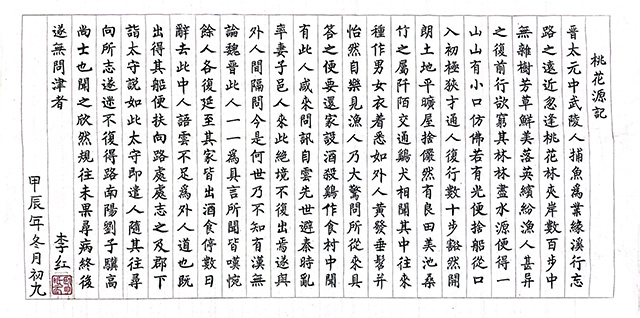 桃花源記
晉太元中武陵人捕魚爲業緣溪行忘
路之遠近忽逢桃花林夾岸數百步中
無雜樹芳草鮮美落英繽紛漁人甚异
之復前行欲窮其林林盡水源便得一
山山有小口仿佛若有光便捨船從口
入初極狹才通人復行數十步豁然開
朗土地平曠屋捨儼然有良田美池桑
竹之屬阡陌交通鷄犬相聞其中往來
種作男女衣着悉如外人黃發垂髫并
怡然自樂見漁人乃大驚問所從來具
答之便要還家設酒殺鷄作食村中聞
有此人咸來問訊自雲先世避秦時亂
率妻子邑人來此絕境不復出焉遂與
外人間隔問今是何世乃不知有漢無
論魏晉此人一一爲具言所聞皆嘆惋
餘人各復延至其家皆出酒食停數日
辭去此中人語雲不足爲外人道也既
出得其船便扶向路處處志之及郡下
詣太守說如此太守即遣人隨其往尋
向所志遂迷不復得路南陽劉子驥高
尚士也聞之欣然規往未果尋病終後
遂無問津者
李红
甲辰年冬月初九